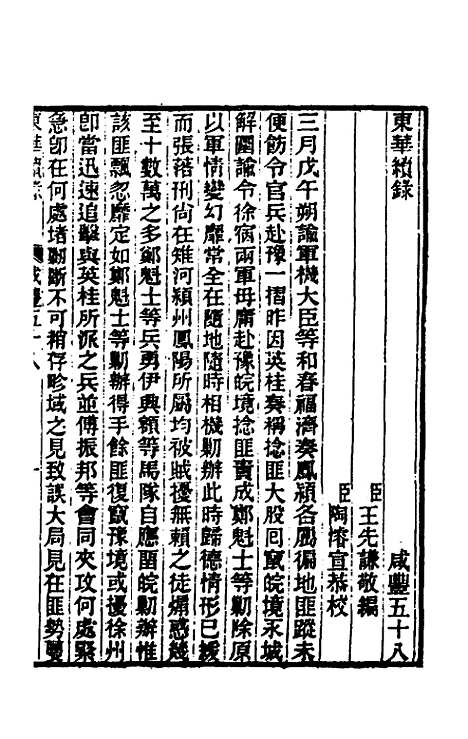 東華續錄
咸豐五十八
臣王先謙敬編
臣陶濬宣恭校
三月戊午朔諭軍機大臣等和春福濟奏鳳潁各屬徧地匪蹤未
便飭令官兵赴豫一摺昨因英桂奏稱捻匪大股囘竄皖境永城
解圍諭令徐宿兩軍毋庸赴豫皖境捻匪責成鄭魁士等勦除原
以軍情變幻靡常全在隨地隨時相機勦辦此時歸德情形已緩
而張落刑尙在雉河潁州鳳陽所屬均被賊擾無賴之徒煽惑幾
至十數萬之多鄭魁士等兵勇伊興額等馬隊自應畱皖勦辦惟
該匪飄忽靡定如鄭魁士等勦辦得手餘匪復竄豫境或擾徐州
卽當迅速追擊與英桂所派之兵並傅振邦等會同夾攻何處緊
急卽在何處堵勦斷不可稍存畛域之見致誤大局見在匪勢蔓
東華續錄 咸豐五十八 一